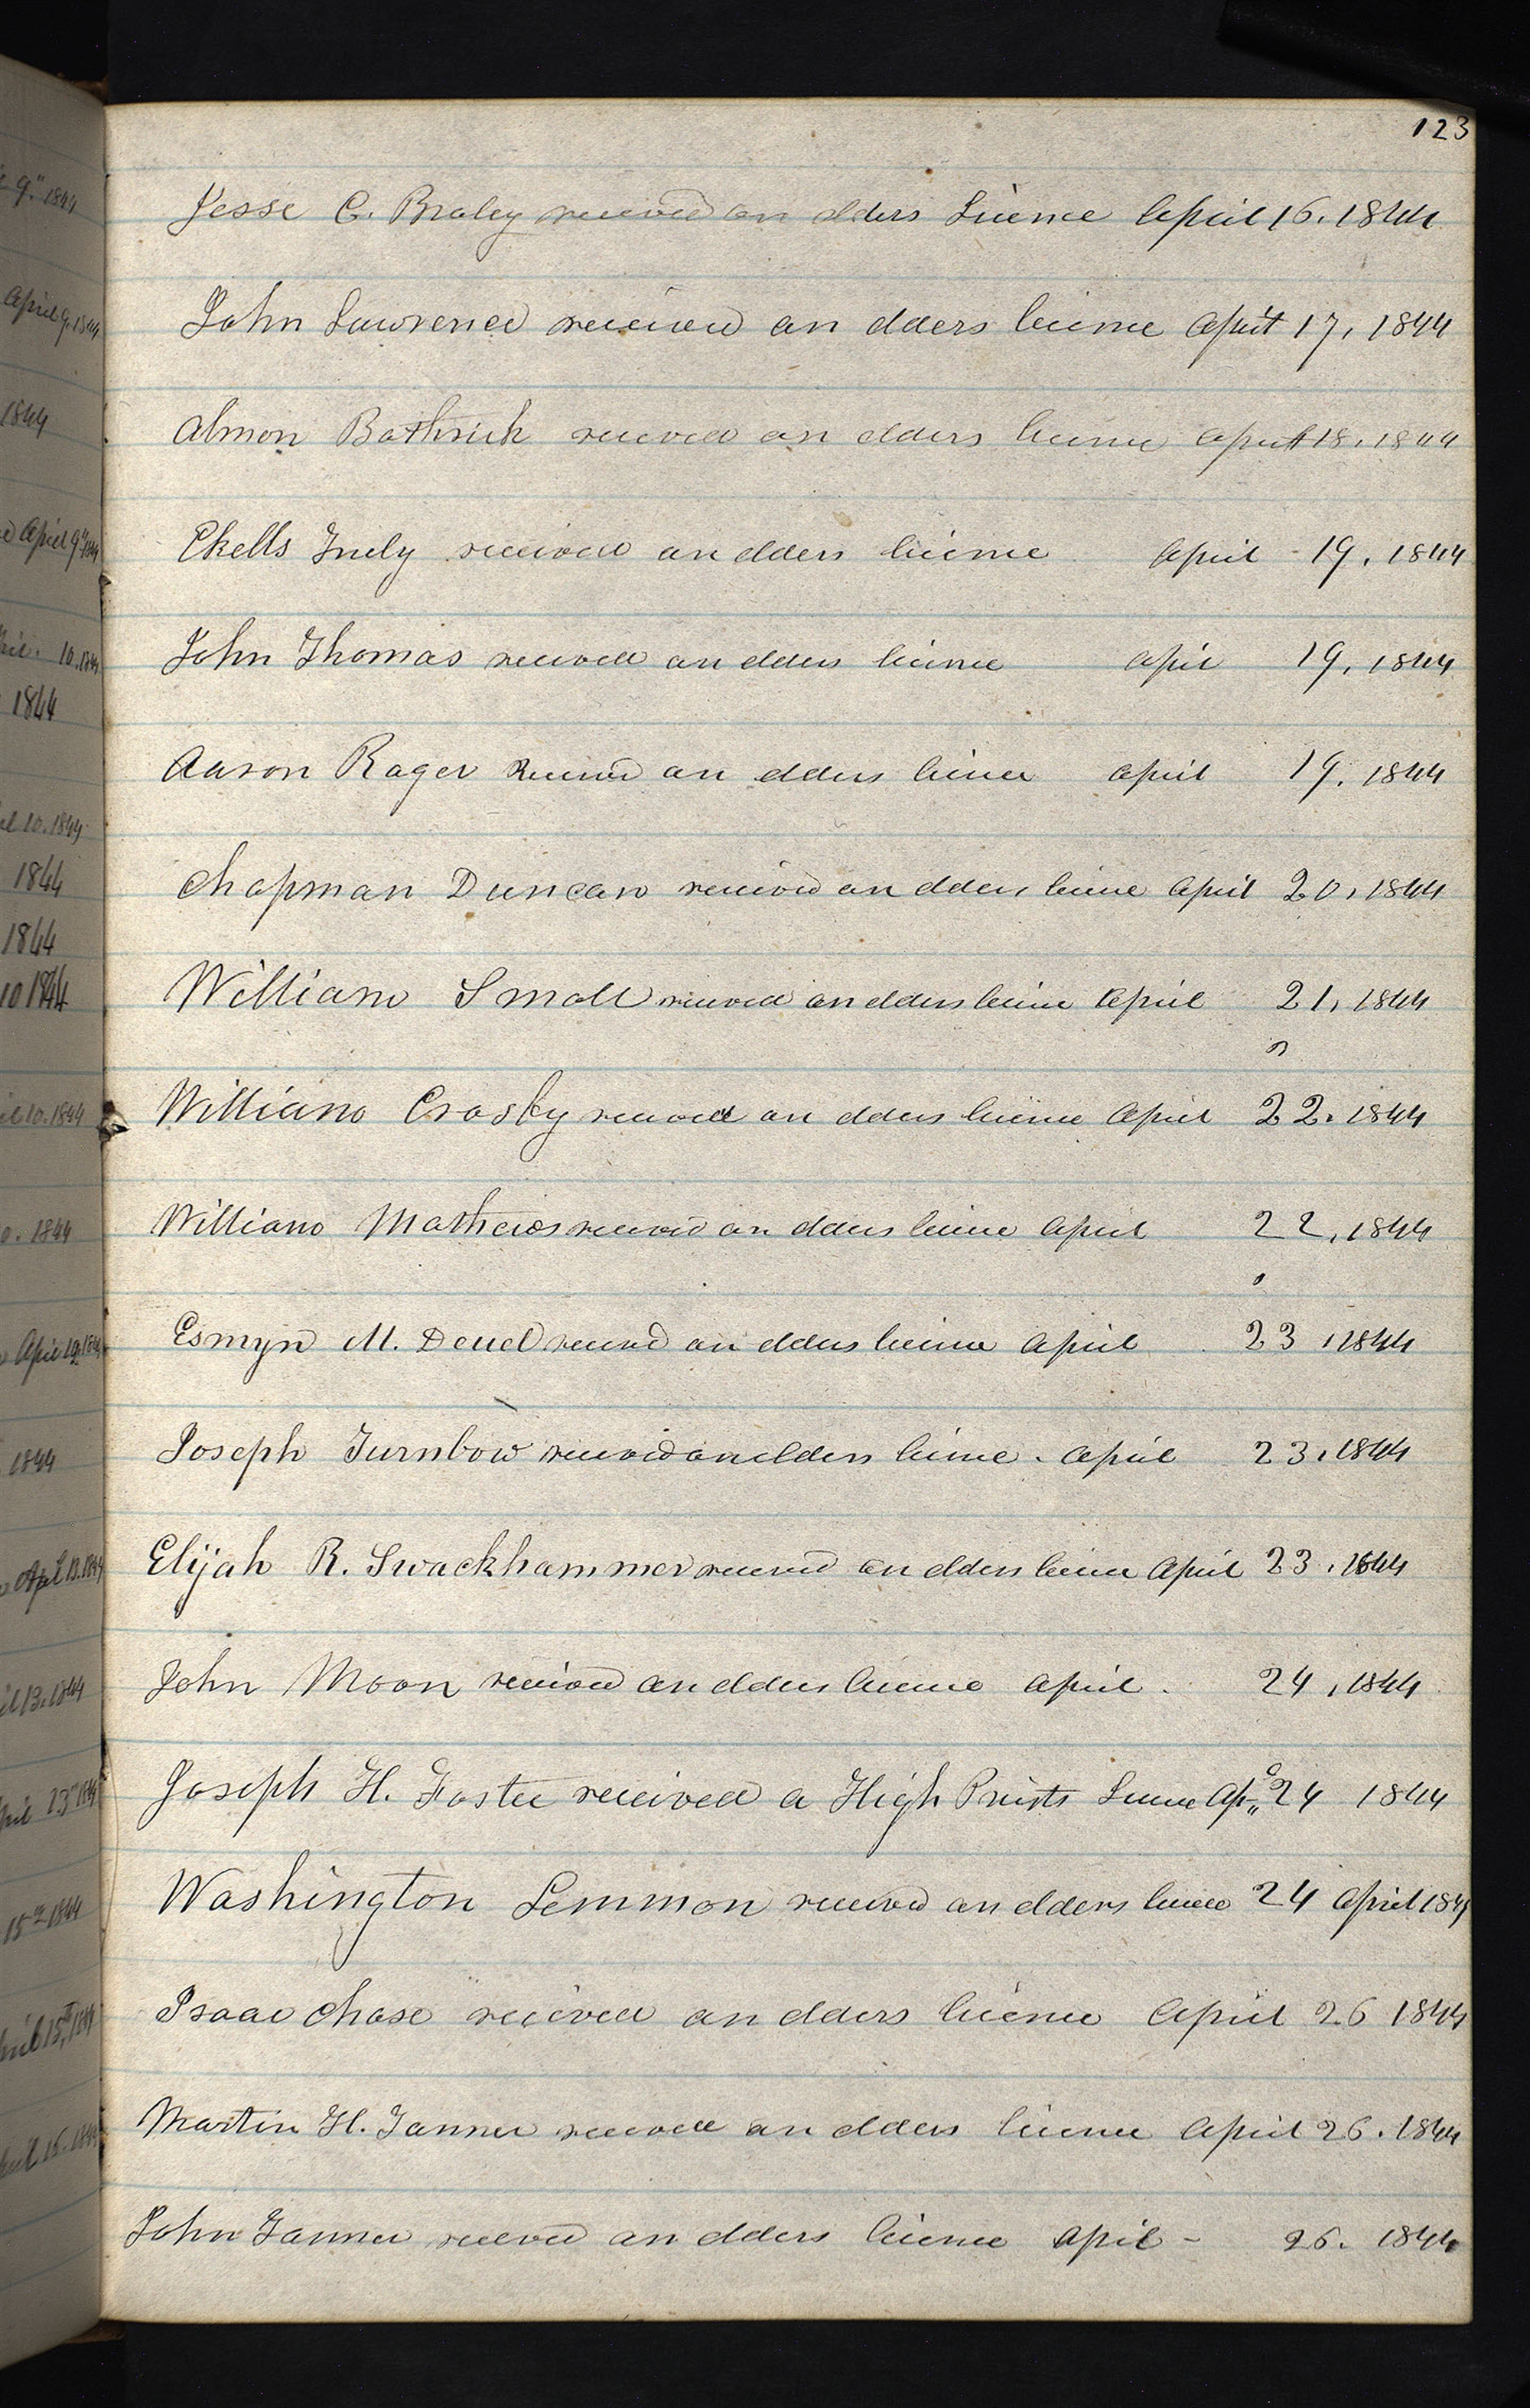 123
9" 1844
Jesse C. Braley received an elders License April 16. 1844
April 9, 1844
John Lawrence received an elders license April 17, 1844
1844
Almon Bathrick received an elders license April 18, 1844
April 9" 1844
Ekells Truly received an elders license April - 19, 1844
10. 1844
John Thomas received an elders license April 19, 1844
1844
Aaron Rager Received an elders license April 19, 1844
10. 1844
1844
Chapman Duncan received an elders license April 20, 1844
1844
10 1844
William Small received an elders license April 21, 1844
10. 1844
William Crosby received an elders license April 22. 1844
1844
William Mathews received an elders license April 22, 1844
Esmyn M. Deuel received an elders license April 23, 1844
1844
Joseph Turnbow received an elders license. April 23, 1844
Apl 13. 1844
Elijah R. Swackhammer received an elders license April 23, 1844
13. 1844
John Moon received an elders license April. 24, 1844
Joseph H. Foster received a High Priests License Ap. 24 1844
15th 1844
Washington Lemmon received an elders license 24 April 1844
Isaac Chase received an elders license April 26 1844
15. 1844
Martin H. Tanner received an elders license April 26. 1844
John Tanner received an elders license April - 26. 1844